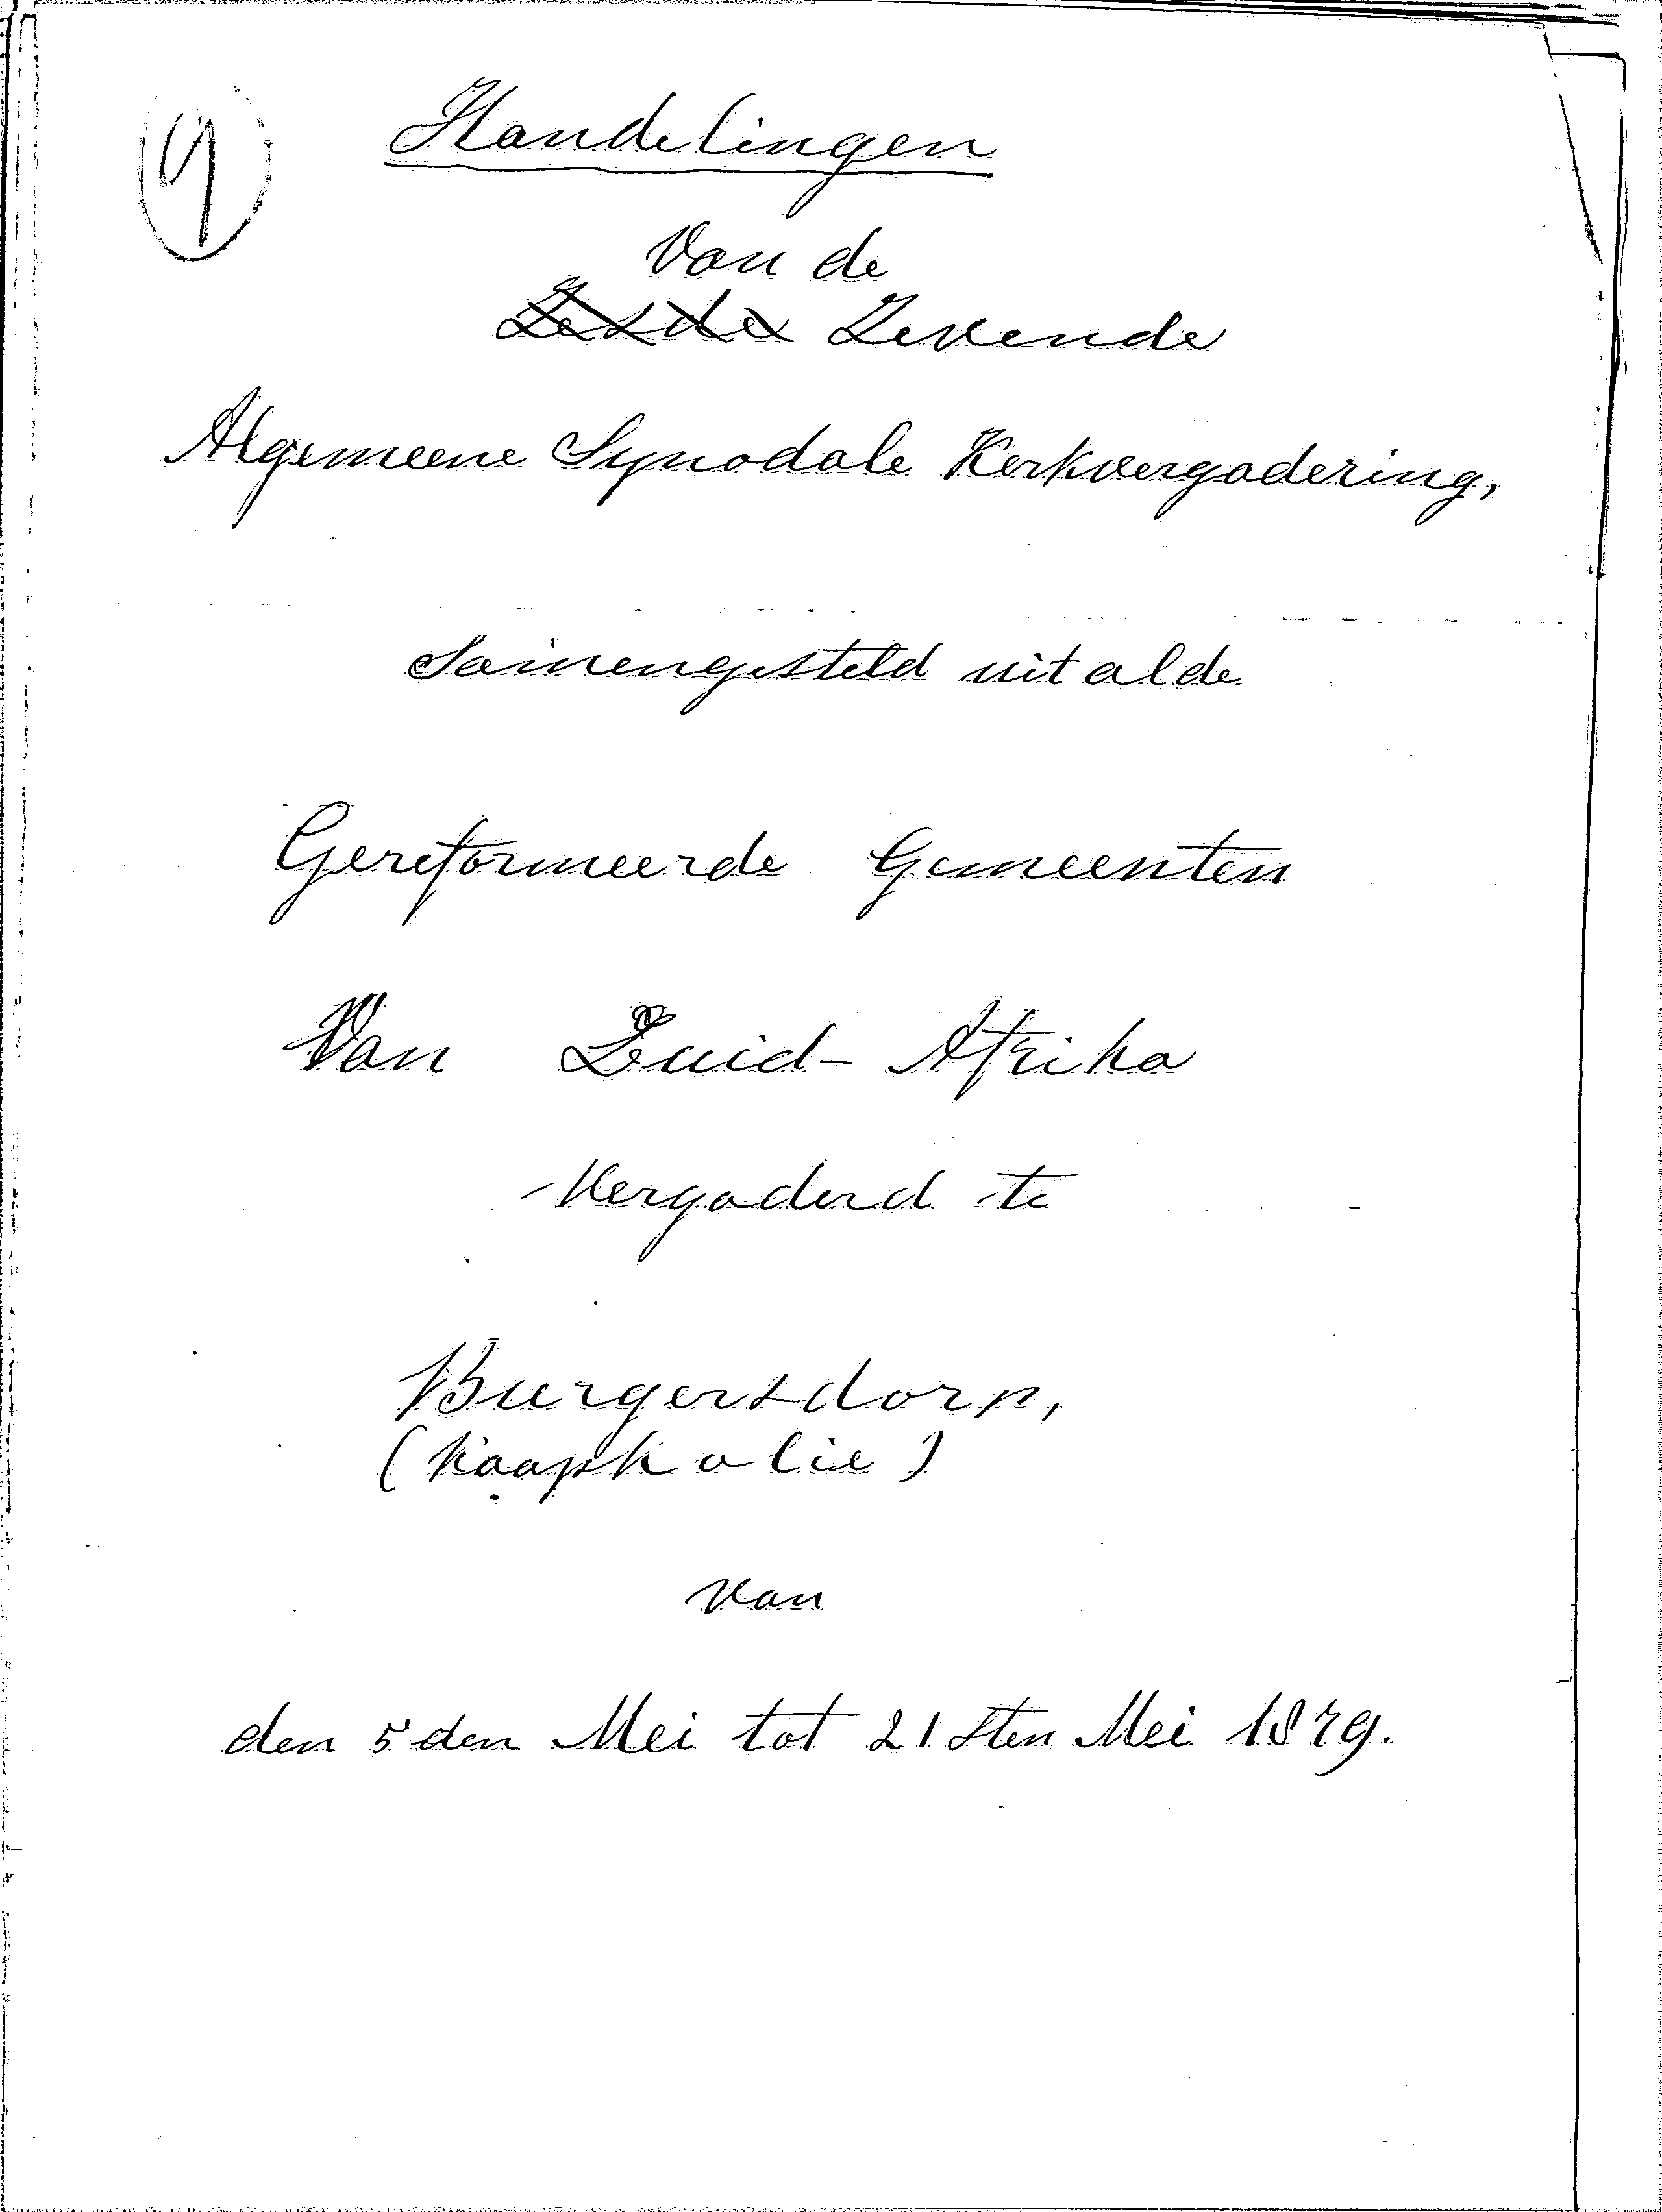 Handelingen
Van de
Zesde Zevende
Algemeene Synodale Kerkvergadering,
Samengesteld uit al de
Gereformeerde Gemeenten
Van Zuid-Afrika
Vergaderd te
Burgersdorp,
(Kaapkolie)
van
den 5den Mei tot 21sten Mei 1879.